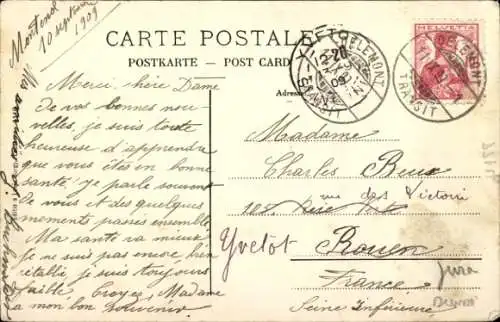 Montenol
10 septembre
1909
CARTE POSTALE
POSTKARTE — POST CARD
Adresse
HELVETIA
DELÉMONT
TRANSIT
DELÉMONT
TRANSIT
Merci, chère Dame
de vos bonnes nou-
velles, je suis toute
heureuse d'apprendre
que vous êtes en bonne
santé. Je parle souvent
de vous et des quelques
moments passés ensemble
Ma santé va mieux
je ne suis pas encore bien
rétablie, je suis toujours
faible. Croyez, Madame
à mon bon souvenir
Mes amitiés
Madame
Charles
rue des Victoire
Yvetot Rouen
France
Seine Inférieure
Jura